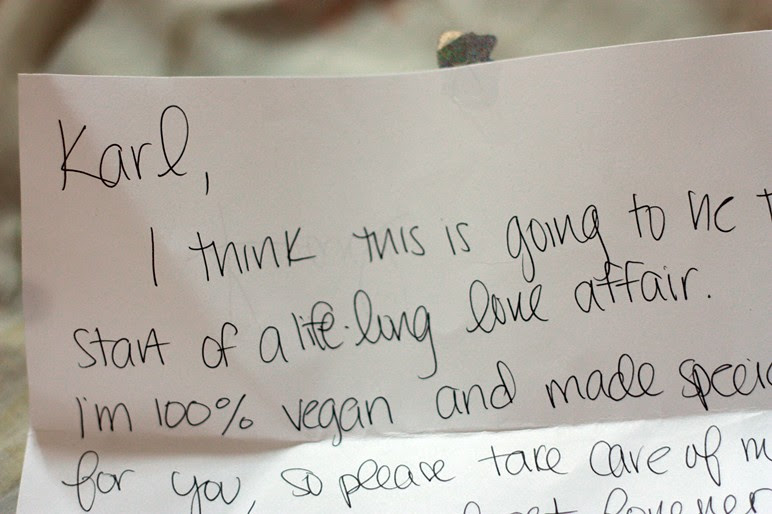 Karl,
I think this is going to be t
start of a life-long love affair.
I'm 100% vegan and made speci
for you, so please take care of m